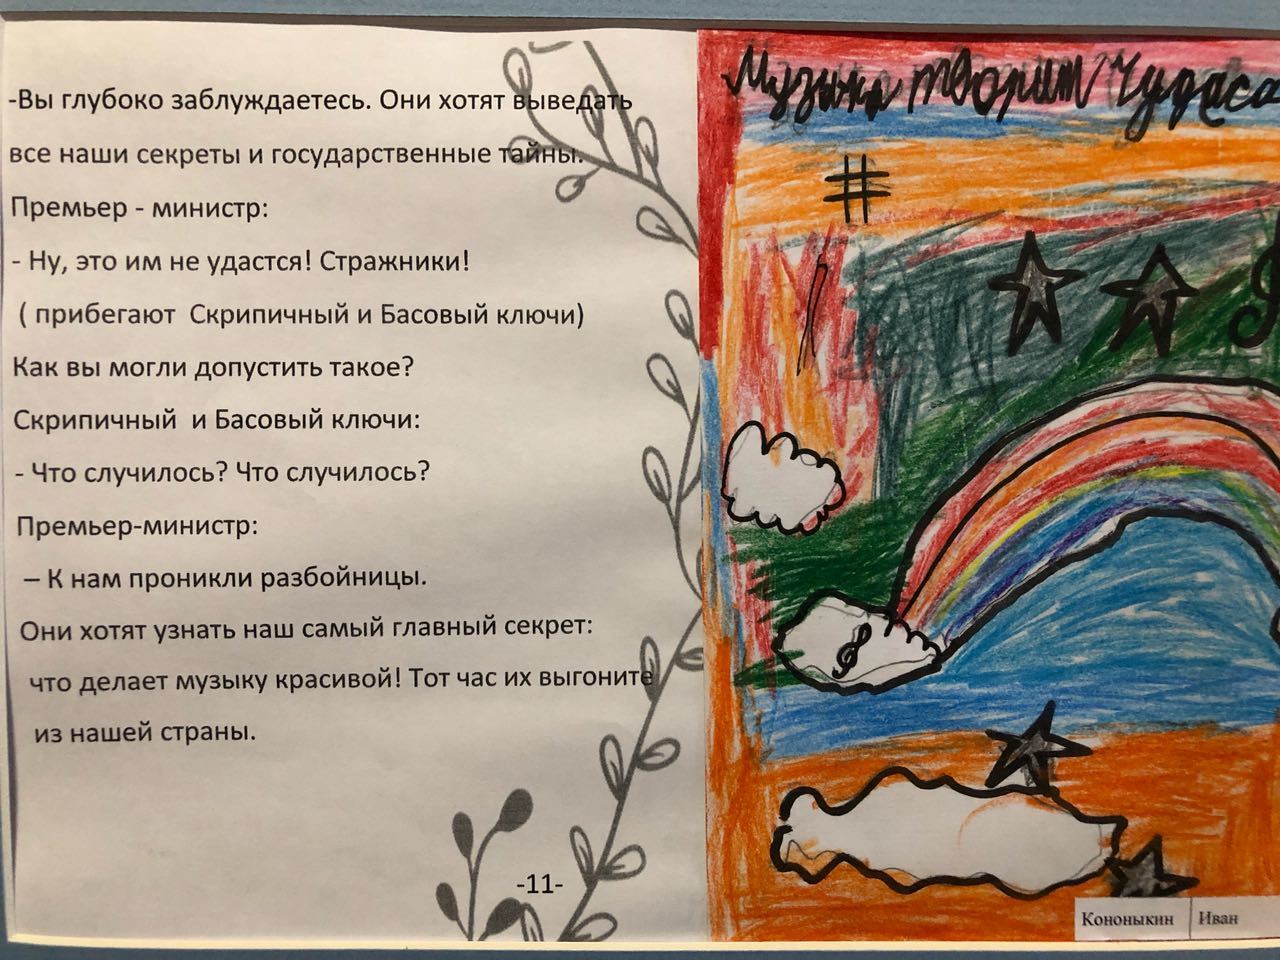 -Вы глубоко заблуждаетесь. Они хотят выведать
все наши секреты и государственные тайны.
Премьер - министр:
- Ну, это им не удастся! Стражники!
( прибегают Скрипичный и Басовый ключи)
Как вы могли допустить такое?
Скрипичный и Басовый ключи:
- Что случилось? Что случилось?
Премьер-министр:
– К нам проникли разбойницы.
Они хотят узнать наш самый главный секрет:
что делает музыку красивой! Тот час их выгоните
из нашей страны.
-11-
Музыка творит Чудеса
Кононыкин Иван